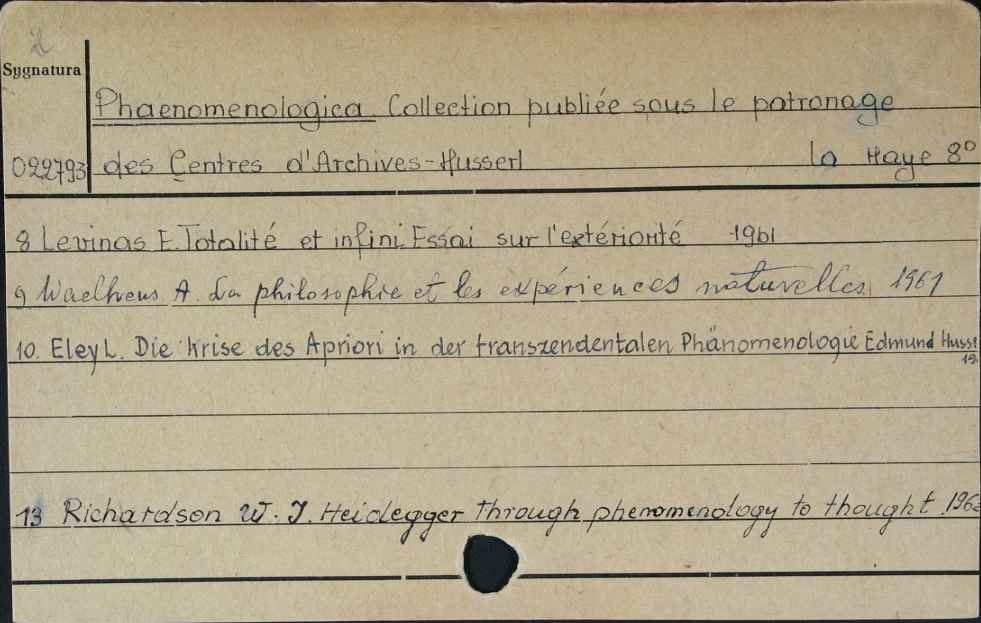 Sygnatura
Phaenomenologica Collection publiée sous le patronage
022793 des Centres d'Archives-Husserl la Haye 8°
8 Levinas E. Totalité et infini. Essai sur l'extériorité 1961
9 Waelhens A. La philosophie et les expériences naturelles 1961
10. Eley L. Die Krise des Apriori in der transzendentalen Phänomenologie Edmund Husse
19
13 Richardson W. J. Heidegger through phenomenology to thought 196